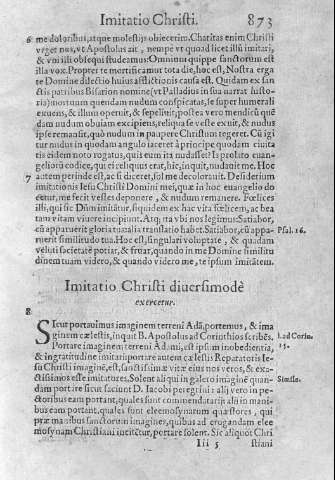 Imitatio Christi. 873
6 me doloribus, atque molestijs obiecerim. Charitas enim Christi
vrget nos, vt Apostolus ait, nempe vt quoad licet illũ imitari,
& vni illi obsequi studeamus: Omnium quippe sanctorum est
illa vox. Propter te mortificamur tota die, hoc est, Nostra erga
te Domine dilectio huius afflictionis causa est. Quidam ex san
ctis patribus Bisarion nomine (vt Palladius in sua narrat histo-
ria) mortuum quendam nudum conspicatus, se super humerali
exuens, & illum operuit, & sepeliuit, postea vero mendicũ quē
dam nudum obuiam excipiens, reliqua se veste exuit, & nudus
ipse remansit, quò nudum in paupere Christum tegeret. Cũ igi
tur nudus in quodam angulo iaceret à principe quodam ciuita
tis eidem noto rogatus, quis eum ita nudasset? Is prolato euan-
gelioru codice, qui ei reliquus erat, hic, inquit, nudauit me. Hoc
7 autem perinde est, ac si diceret, sol me decolorauit. Desiderium
imitationis Iesu Christi Domini mei, quæ in hoc euangelio do
cetur, me fecit vestes deponere, & nudum remanere. Fœlices
illi, qui sic Dñm imitātur, siquidem ex hac vita fœlicem, ac bea
tam vitam viuere incipiunt. Atq; ita vbi nos legimus: Satiabor,
cũ apparuerit gloria tua alia translatio habet. Satiabor, cũ appa- Psal. 16.
ruerit similitudo tua. Hoc est, singulari voluptate, & quadam
veluti societate potiar, & fruar, quando in me Domine similitu
dinem tuam videro, & quando videro me, te ipsum imitātem.
Imitatio Christi diuersimodè
exercetur.
8
SIcut portauimus imaginem terreni Adã, portemus, & ima
ginem cælestis, inquit B. Apostolus ad Corinthios scribẽs. 1. ad Corin.
Portare imaginem terreni Adami, est ipsum inobedientia, 15.
& ingratitudine imitari: portare autem cælestis Reparatoris Ie-
su Christi imaginē, est, sanctissimæ vitæ eius nos veros, & exa-
ctissimos esse imitatores. Solent aliqui in galero imaginē quan- Simile.
dam portare sicut faciunt D. Iacobi peregrini: alij vero in pe-
ctoribus eam portant, quales sunt commendatarij: alij in mani-
bus eam portant, quales sunt eleemosynarum quæstores, qui
præ manibus sanctorum imagines, quibus ad erogandam elee
mosynam Christiani incitētur, portare solent. Sic aliquot Chri
Iii 5 stiani